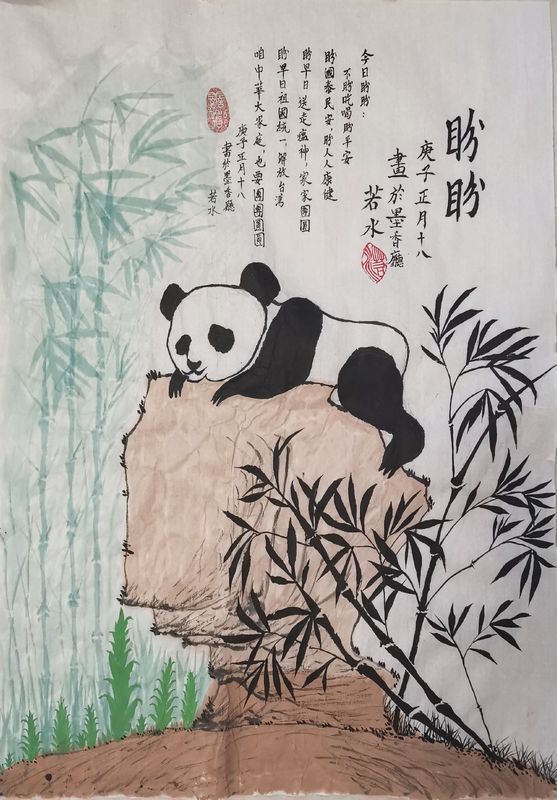 盼盼
庚子正月十八
畫於墨香廳
若水
今日盼盼：
不盼吃喝盼平安
盼國泰民安，盼人人康健
盼早日送走瘟神，家家團圓
盼早日祖國統一，解放台湾
咱中華大家庭，也要團團圓圓
庚子正月十八
書於墨香廳
若水